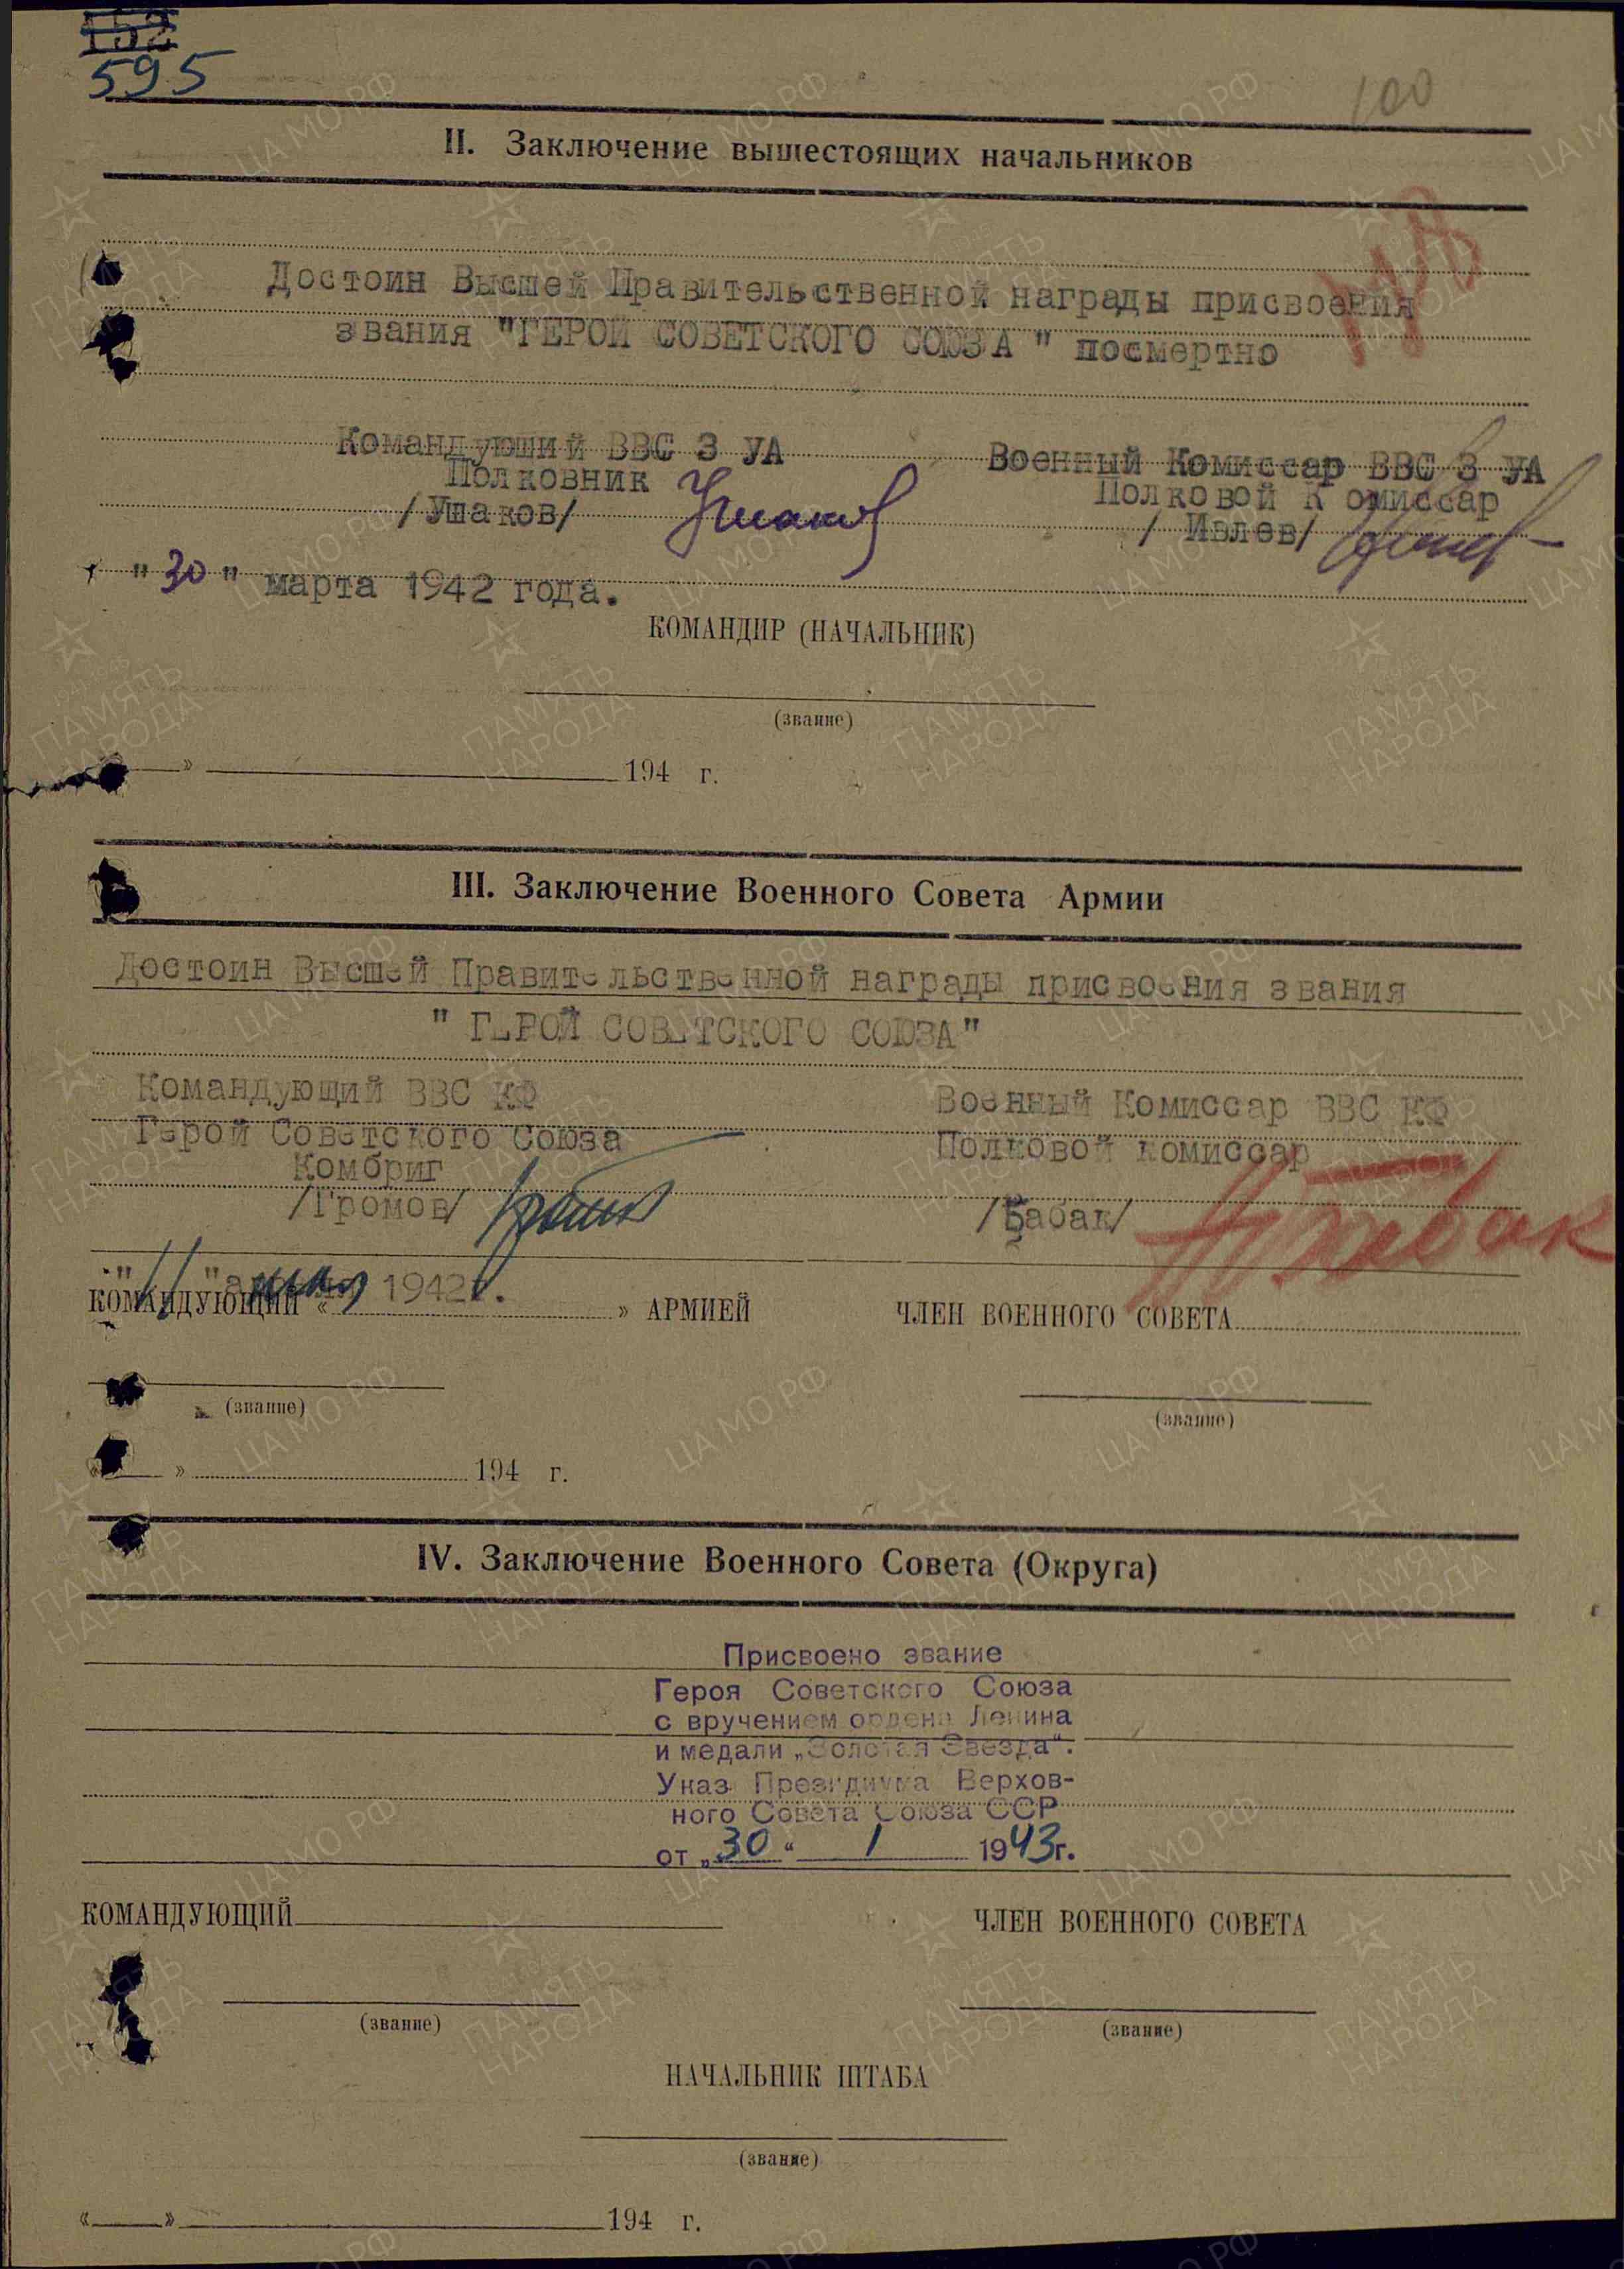 152
595
100
II. Заключение вышестоящих начальников
Достоин Высшей Правительственной награды присвоения
звания "ГЕРОЙ СОВЕТСКОГО СОЮЗА" посмертно
Командующий ВВС 3 УА Военный Комиссар ВВС 3 УА
Полковник Полковой Комиссар
/Ушаков/ Ушаков / Ивлев/
"30" марта 1942 года.
КОМАНДИР (НАЧАЛЬНИК)
(звание)
» 194 г.
III. Заключение Военного Совета Армии
Достоин Высшей Правительственной награды присвоения звания
" ГЕРОЙ СОВЕТСКОГО СОЮЗА"
Командующий ВВС КФ Военный Комиссар ВВС КФ
Герой Советского Союза Полковой комиссар
Комбриг
/Громов/ /Бабак/ Бабак
" 11 " 1942г.
КОМАНДУЮЩИЙ « » АРМИЕЙ ЧЛЕН ВОЕННОГО СОВЕТА
(звание) (звание)
« » 194 г.
IV. Заключение Военного Совета (Округа)
Присвоено звание
Героя Советского Союза
с вручением ордена Ленина
и медали „Золотая Звезда“.
Указ Президиума Верхов-
ного Совета Союза ССР
от „30“ 1 1943г.
КОМАНДУЮЩИЙ ЧЛЕН ВОЕННОГО СОВЕТА
(звание) (звание)
НАЧАЛЬНИК ШТАБА
(звание)
« » 194 г.
ЦА МО РФ
ПАМЯТЬ
НАРОДА